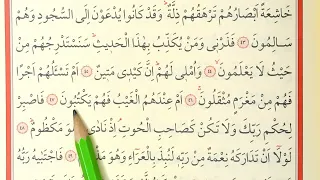 خَاشِعَةً اَبْصَارُهُمْ تَرْهَقُهُمْ ذِلَّةٌ وَقَدْ كَانُوا يُدْعَوْنَ اِلَى السُّجُودِ وَهُمْ
سَالِمُونَ ﴿٤٣﴾ فَذَرْنِى وَمَنْ يُكَذِّبُ بِهٰذَا الْحَدِيثِ سَنَسْتَدْرِجُهُمْ مِنْ
حَيْثُ لَا يَعْلَمُونَ ﴿٤٤﴾ وَاُمْلِى لَهُمْ اِنَّ كَيْدِى مَتِينٌ ﴿٤٥﴾ اَمْ تَسْـَٔلُهُمْ اَجْرًا
فَهُمْ مِنْ مَغْرَمٍ مُثْقَلُونَ ﴿٤٦﴾ اَمْ عِنْدَهُمُ الْغَيْبُ فَهُمْ يَكْتُبُونَ ﴿٤٧﴾ فَاصْبِرْ
لِحُكْمِ رَبِّكَ وَلَا تَكُنْ كَصَاحِبِ الْحُوتِ اِذْ نَادٰى وَهُوَ مَكْظُومٌ ﴿٤٨﴾
لَوْلَا اَنْ تَدَارَكَهُ نِعْمَةٌ مِنْ رَبِّهِ لَنُبِذَ بِالْعَرَاءِ وَهُوَ مَذْمُومٌ ﴿٤٩﴾ فَاجْتَبٰيهُ رَبُّهُ